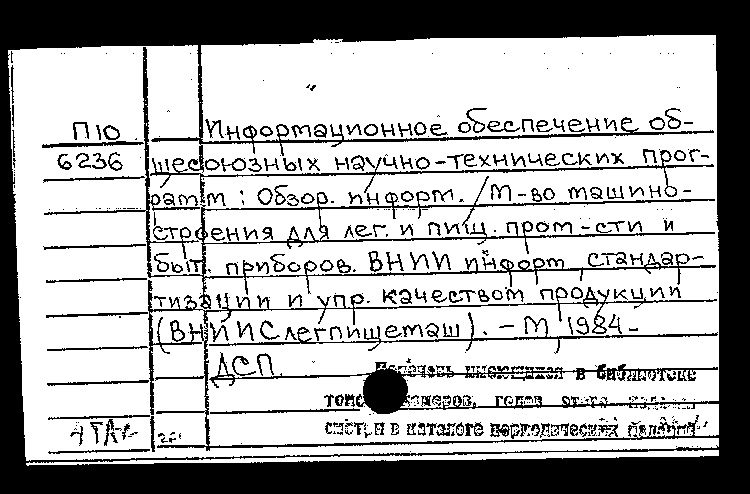 П10 Информационное обеспечение об-
6236 щесоюзных научно-технических прог-
рамм : Обзор. информ. / М-во машино-
строения для лег. и пищ. пром-сти и
быт. приборов. ВНИИ информ., стандар-
тизации и упр. качеством продукции
(ВНИИСлегпищемаш). – М., 1984 –
ДСП.
Перечень имеющихся в библиотеке
томов, номеров, годов этого издания
смотри в каталоге периодических изданий